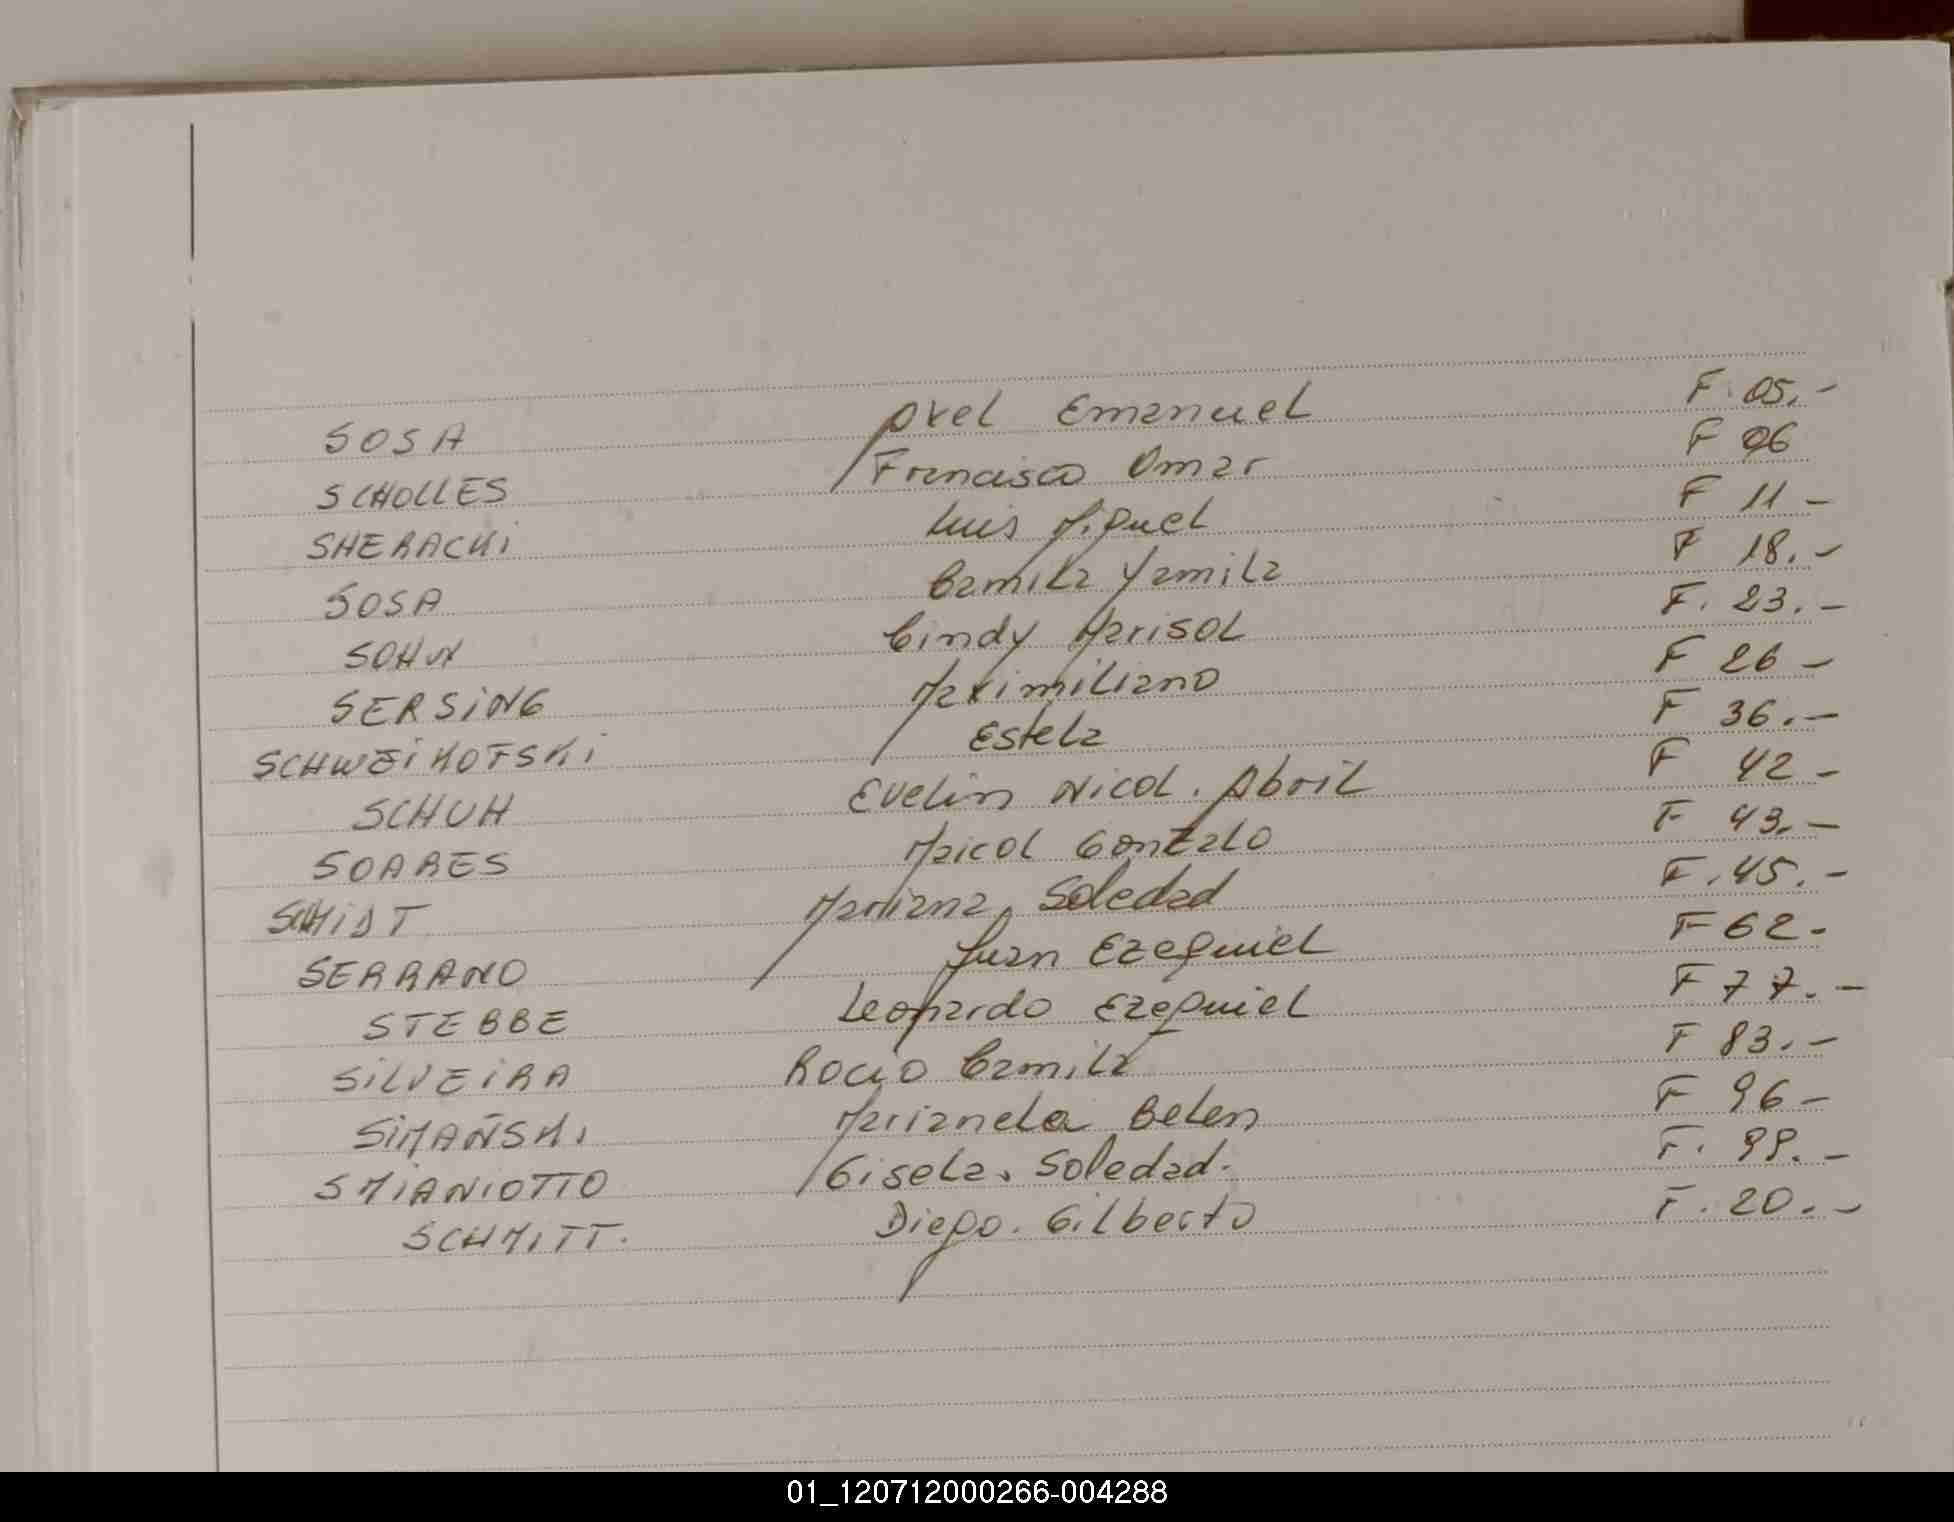 SOSA Axel Emanuel F. 05.-
SCHOLLES Francisco Omar F 06
SHERACKi Luis Miguel F 11-
SOSA Camila Yamila F 18.-
SOHN Cindy Marisol F. 23.-
SERSiNG Maximiliano F 26-
SCHWEiKOFSKi Estela F 36.-
SCHUH Evelin Nicol. Abril F 42-
SOARES Maicol Gonzalo F 43.-
SCHMiDT Mariana Soledad F. 45.-
SERRANO Juan Ezequiel F 62-
STEBBE Leonardo Ezequiel F 77.-
SiLVEiRA Rocio Camila F 83.-
SiMAÑSKi Marianela Belen F 96-
SMiANiOTTO Gisela. Soledad. F. 99.-
SCHMiTT. Diego. Gilberto F. 20.-
01_120712000266-004288